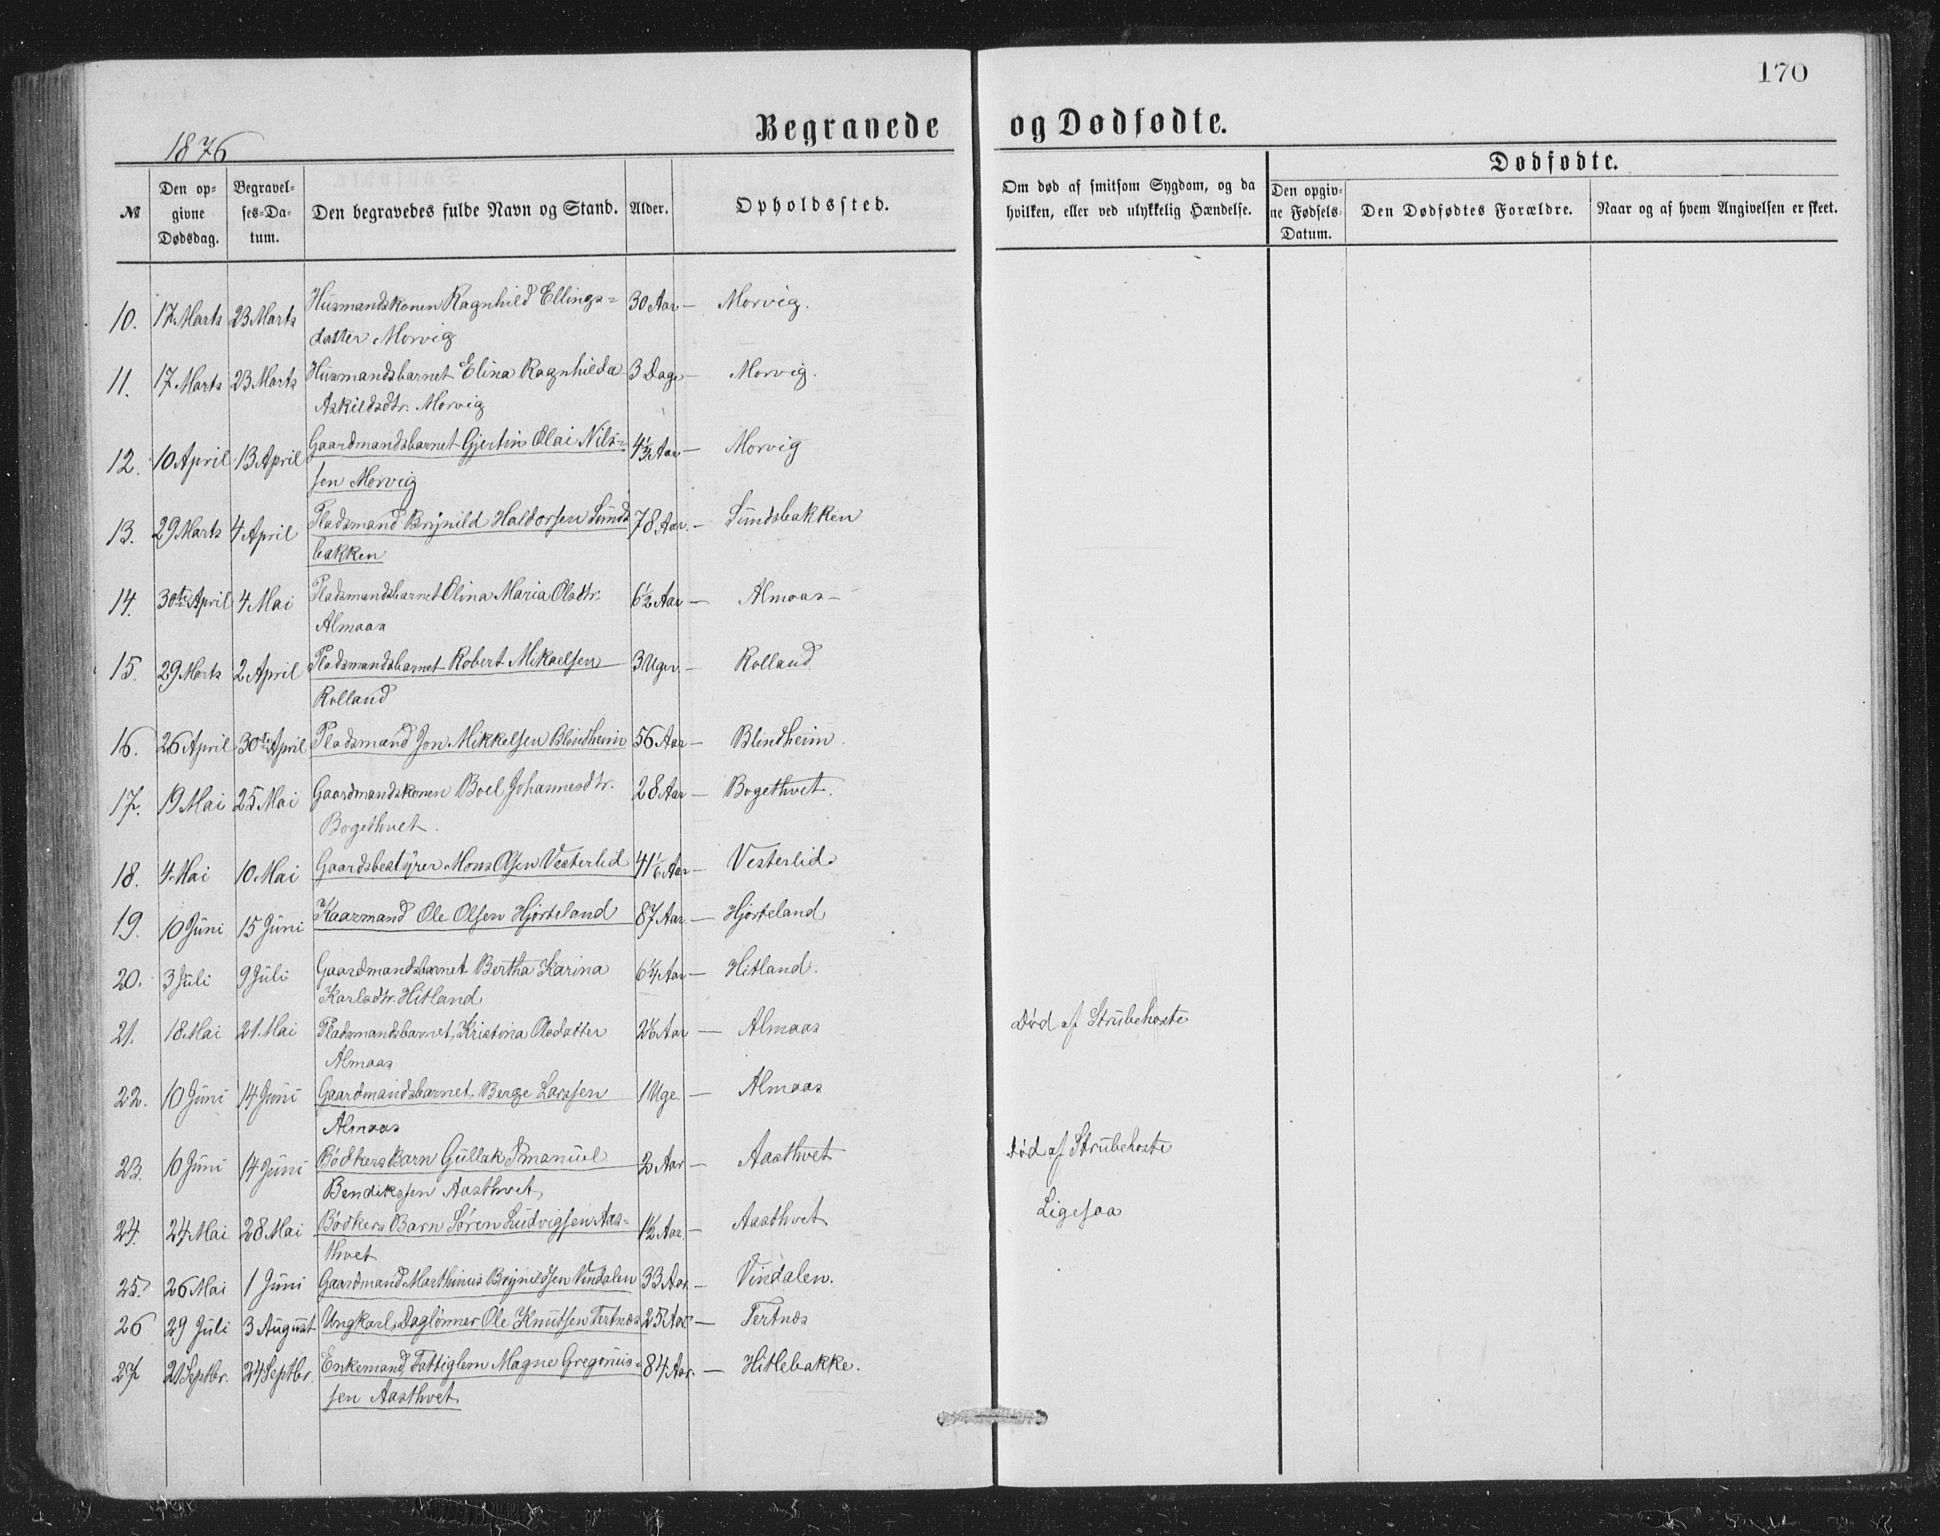 170
Begravede og Dødfødte.
1876
Dødfødte.
№ Den opgivne Dødsdag. Begravelses-Datum. Den begravedes fulde Navn og Stand. Alder. Opholdssted. Om død af smitsom Sygdom, og da hvilken, eller ved ulykkelig Hændelse. Den opgivne Fødsels-Datum. Den Dødfødtes Forældre. Naar og af hvem Angivelsen er skeet.
10. 17 Marts 23 Marts Husmandskonen Ragnhild Ellings= 30 Aar — Morvig.
datter Morvig
11. 17 Marts 23 Marts Husmandsbarnet Elina Ragnhilda 3 Dage — Morvig.
Askildsdtr. Morvig
12. 10 April 13 April Gaardmandsbarnet Gjertin Olai Nils= 4½ Aar — Morvig
sen Morvig
13. 29 Marts 4 April Pladsmand Brynild Haldorsen Sunds 78 Aar. — Sundsbakken
bakken
14. 30te April 4 Mai Pladsmandsbarnet Olina Maria Olsdtr. 6½ Aar — Almaas —
Almaas
15. 29 Marts 2 April Pladsmandsbarnet Robert Mikaelsen 3 Uger. — Rolland
Rolland
16. 26 April 30te April Pladsmand Jon Mikkelsen Blindheim 56 Aar — Blindheim.
17. 19 Mai 25 Mai Gaardmandskonen Boel Johannesdtr. 28 Aar — Bogethvet.
Bogethvet.
18. 4 Mai 10 Mai Gaardsbestyrer Mons Olsen Vesterlid 41 1/6 Aar — Vesterlid.
19. 10 Juni 15 Juni Kaarmand Ole Olsen Hjorteland 87 Aar. — Hjorteland
20. 3 Juli 9 Juli Gaardmandsbarnet Bertha Karina 6¼ Aar — Hitland.
Karlsdtr. Hitland
21. 18 Mai 21 Mai Pladsmandsbarnet, Kristina Olsdatter 2 1/6 Aar — Almaas Død af Strubehoste
Almaas
22. 10 Juni 14 Juni Gaardmandsbarnet, Berge Larssen 1 Uge — Almaas
Almaas
23. 10 Juni 14 Juni Bødkers Barn Gullak Emanuel 2 Aar — Aasthvet Død af Strubehoste
Bendikssen Aasthvet,
24. 24 Mai 28 Mai Bødkers Barn Søren Ludvigsen Aas= 1½ Aar. — Aasthvet Ligesaa
thvet
25. 26 Mai 1 Juni Gaardmand Marthinus Brynildsen Vindalen 33 Aar — Vindalen.
26 29 Juli 3 August Ungkarl, Daglønner Ole Knutsen Tertnæs 25 Aar — Tertnæs
27 20 Septbr. 24 Septbr. Enkemand, Fattiglem Magne Gregorius= 84 Aar. — Hitlebakke.
sen Aasthvet